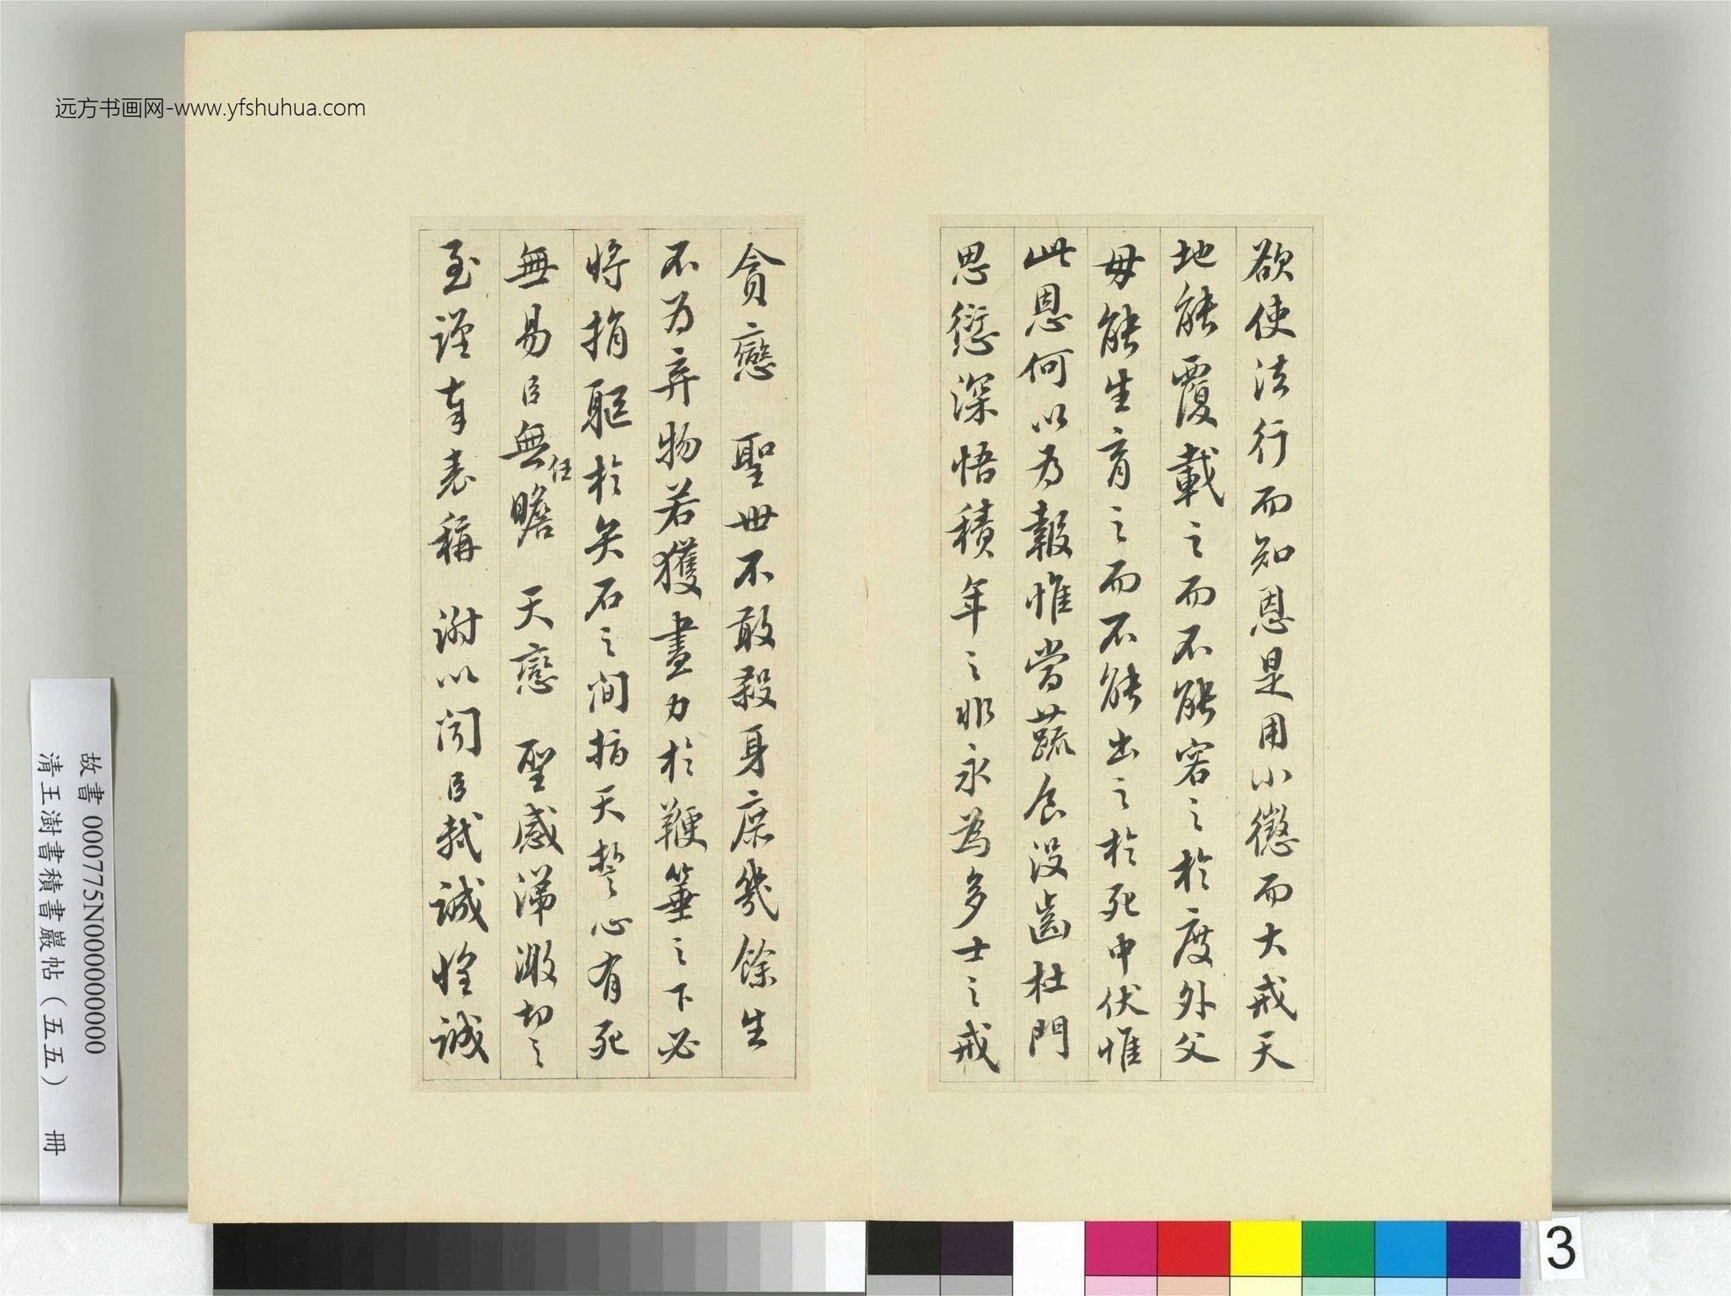 远方书画网-www.yfshuhua.com
欲使法行而知恩是用小懲而大戒天
地能覆載之而不能容之於度外父
毋能生育之而不能出之於死中伏惟
此恩何以為報惟當蔬食没齒杜門
思愆深悟積年之非永為多士之戒
貪戀 聖世不敢殺身庶幾餘生
不為棄物若獲盡力於鞭箠之下必
將捐軀於矢石之間指天誓心有死
無易臣無任瞻 天戀 聖感涕激切之
至謹奉表稱 謝以聞臣軾誠惶誠
故書 000775N000000000
清王澍書積書巖帖(五五) 冊
3